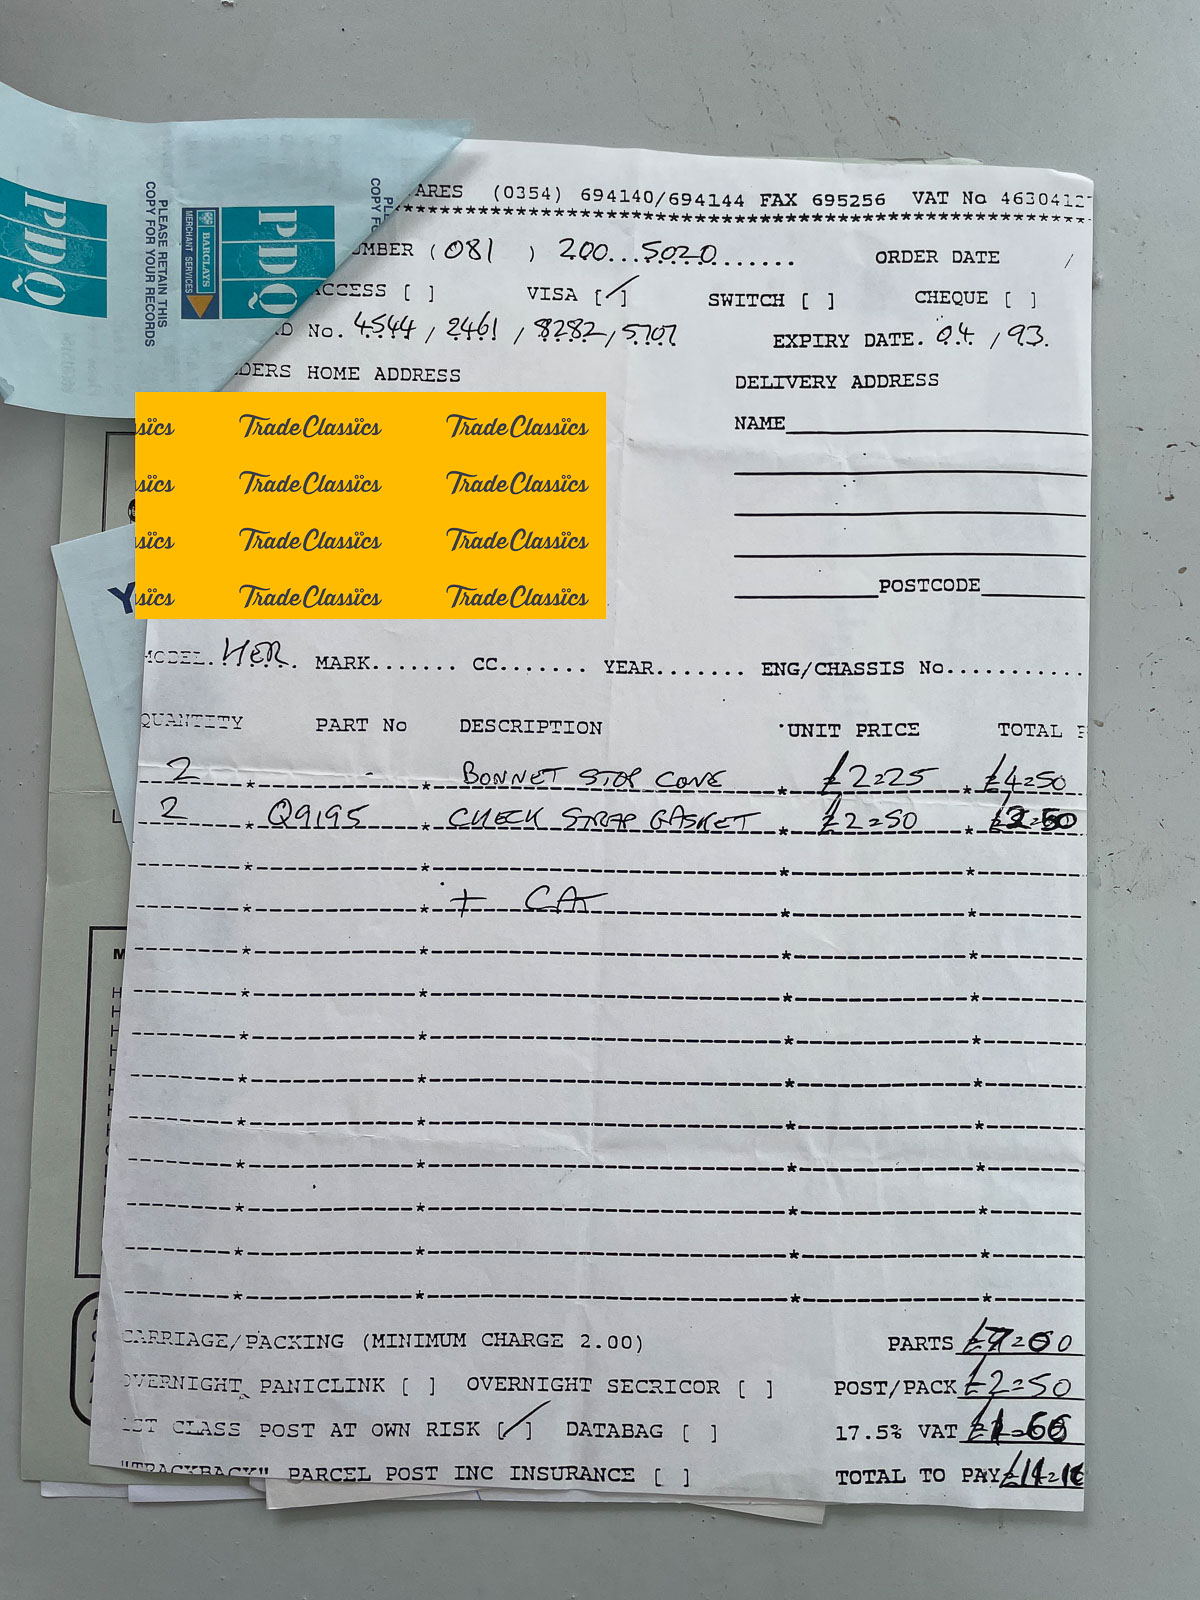 PDQ
PLEASE RETAIN THIS
COPY FOR YOUR RECORDS
BARCLAYS
MERCHANT SERVICES
PDQ
ARES (0354) 694140/694144 FAX 695256 VAT No 4630412
UMBER (081) 200...5020....... ORDER DATE /
ACCESS [ ] VISA [/] SWITCH [ ] CHEQUE [ ]
D No. 4544 / 2461 / 8282 / 5707 EXPIRY DATE. 04 / 93.
DERS HOME ADDRESS
DELIVERY ADDRESS
NAME
sïcs Trade Classïcs Trade Classïcs
sïcs Trade Classïcs Trade Classïcs
sïcs Trade Classïcs Trade Classïcs
sïcs Trade Classïcs Trade Classïcs
POSTCODE
MODEL. HER. MARK....... CC....... YEAR....... ENG/CHASSIS No...........
QUANTITY PART No DESCRIPTION UNIT PRICE TOTAL P
2 - BONNET STOP CONE £2=25 £4=50
2 Q9195 CHECK STRAP GASKET £2=50
+ CAT
CARRIAGE/PACKING (MINIMUM CHARGE 2.00) PARTS
OVERNIGHT PANICLINK [ ] OVERNIGHT SECRICOR [ ] POST/PACK £2=50
1ST CLASS POST AT OWN RISK [/] DATABAG [ ] 17.5% VAT £1=66
"TRACKBACK" PARCEL POST INC INSURANCE [ ] TOTAL TO PAY £14=16